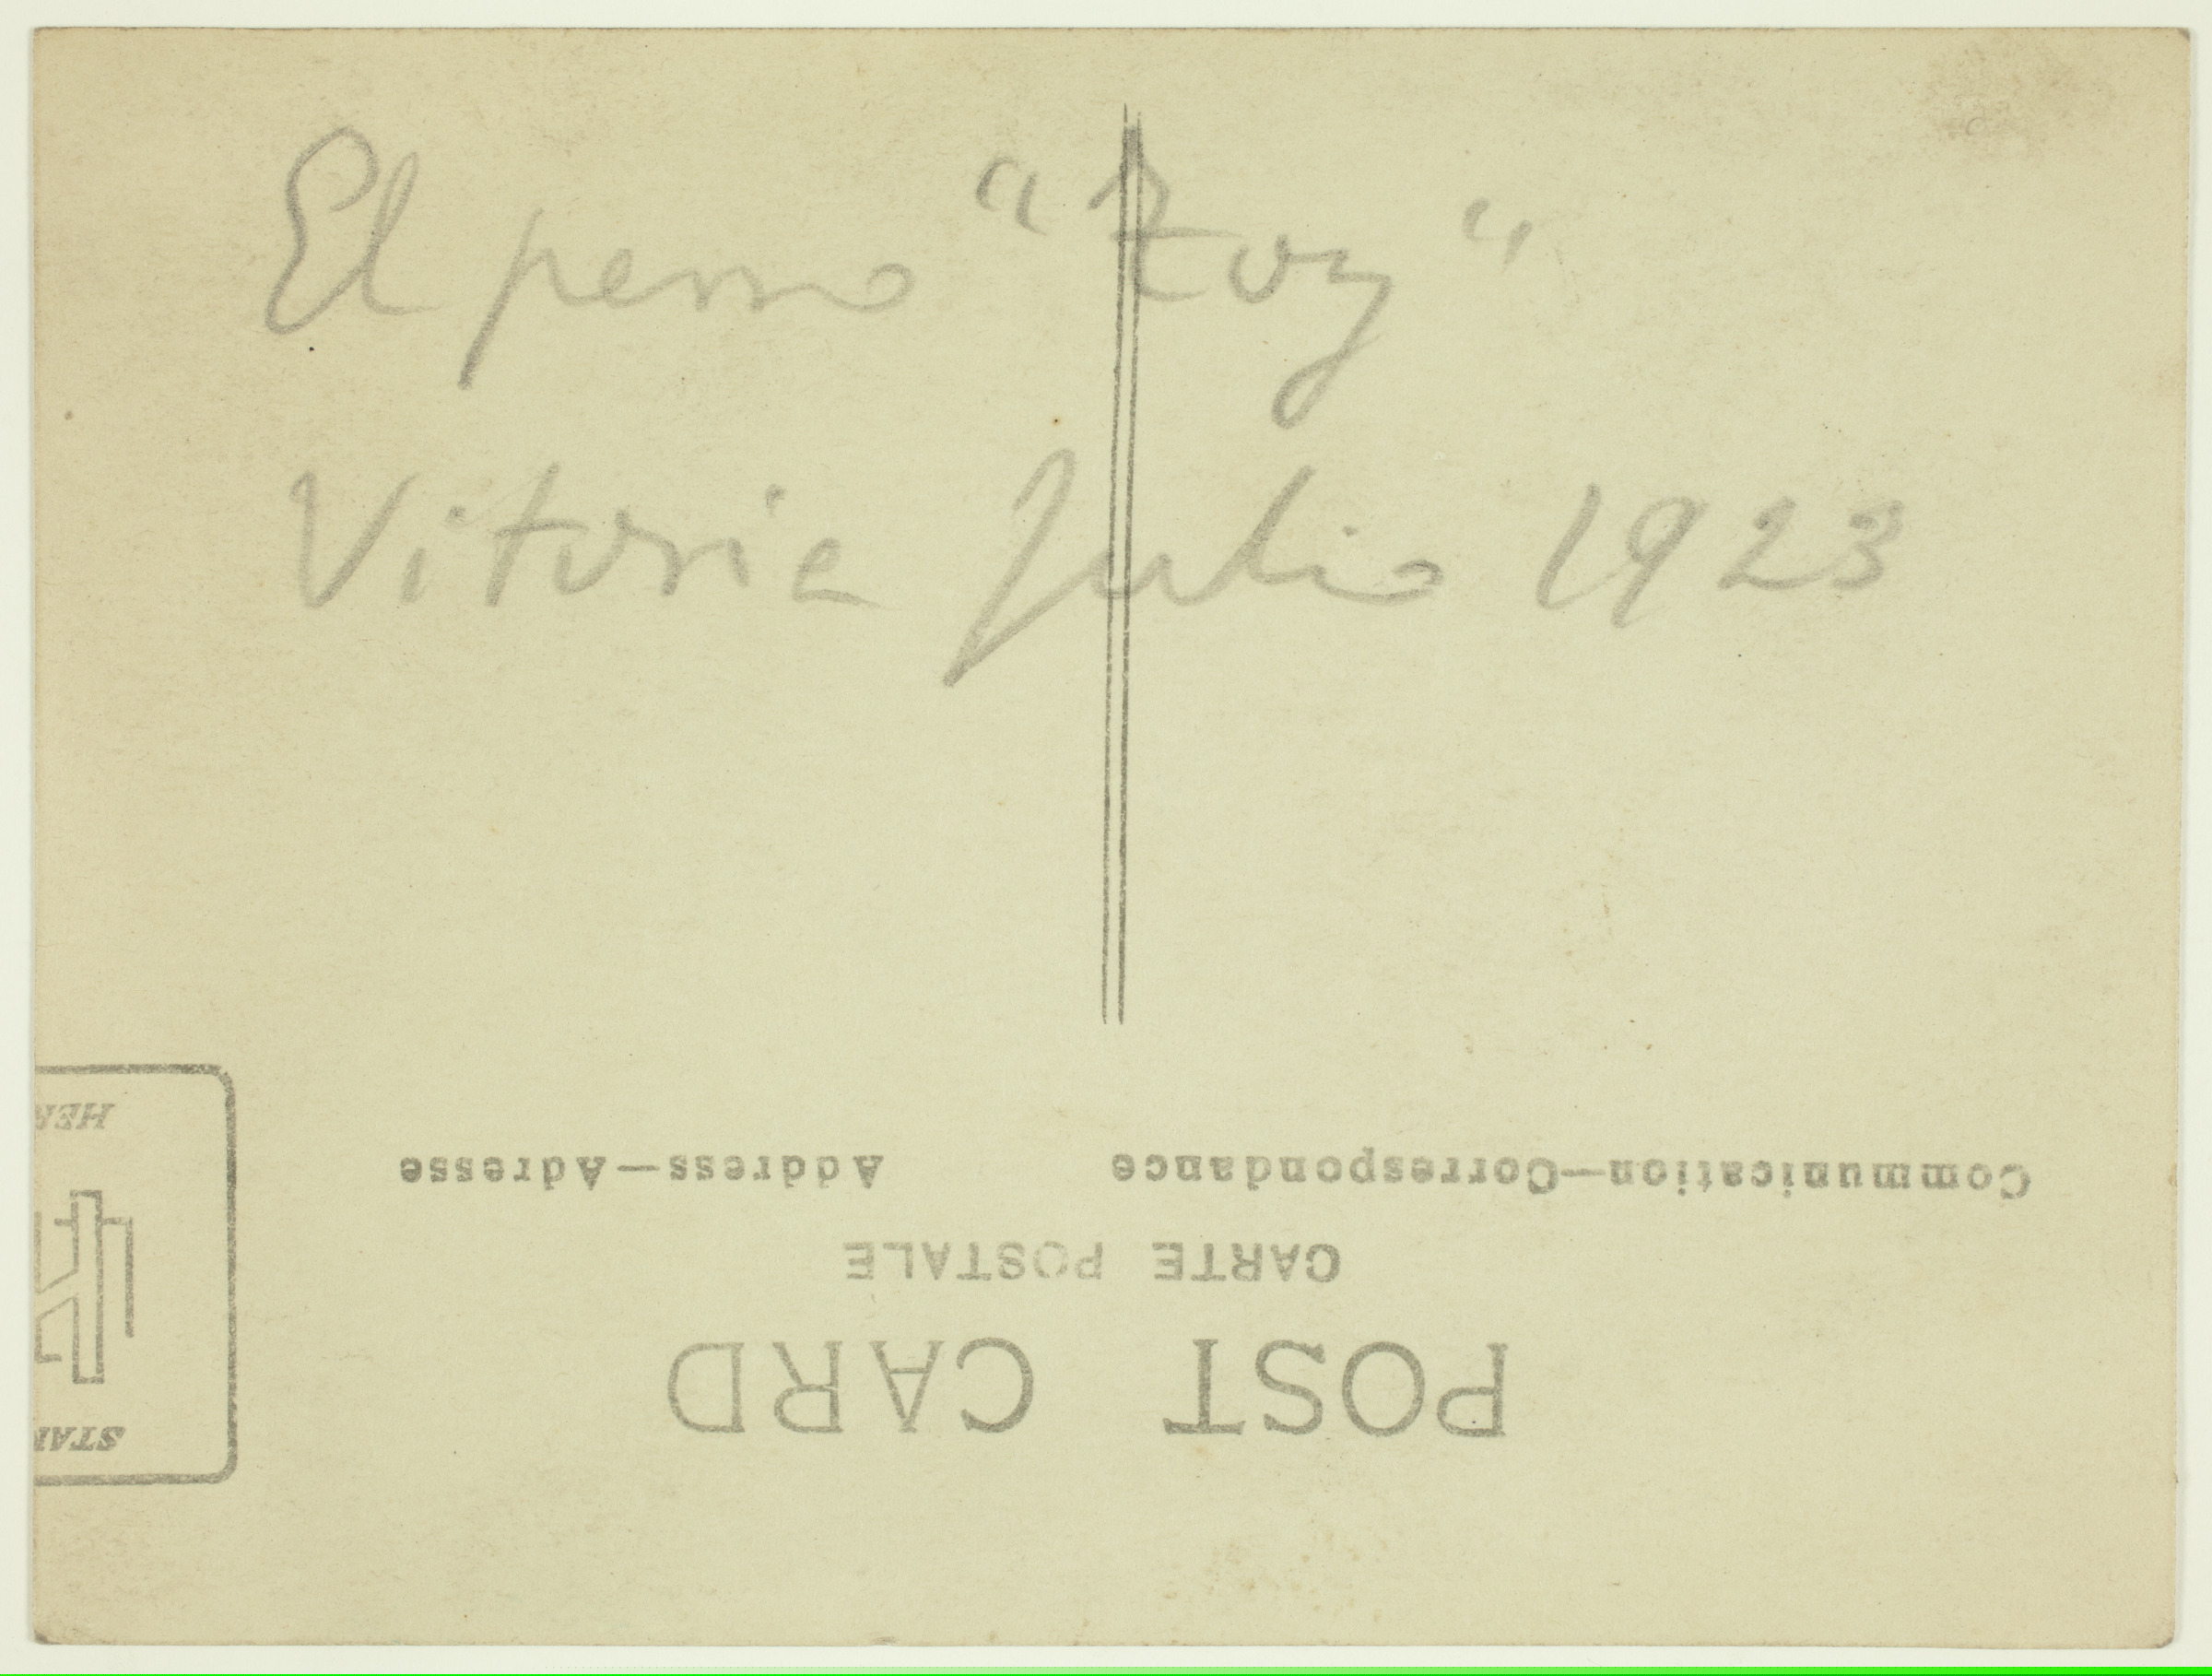 El perro
Vitoria Julio 1923
POST CARD
CARTE POSTALE
Communication—Correspondance Address—Adresse